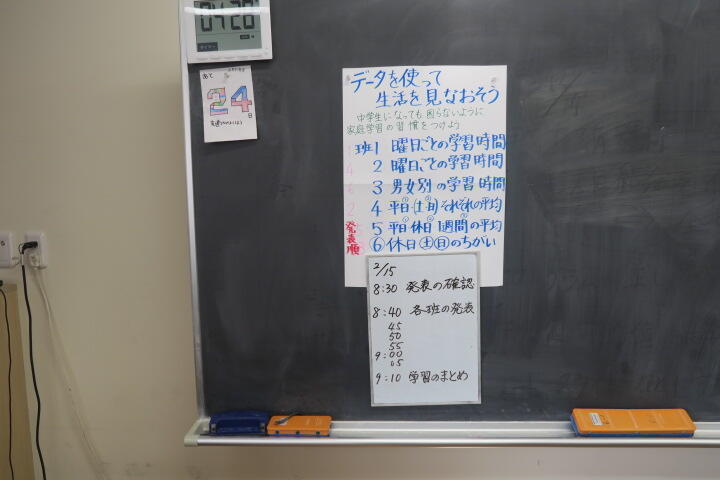 04:20
あと
24日
データを使って
生活を見なおそう
中学生になっても困らないように
家庭学習の習慣をつけよう
班1 曜日ごとの学習時間
2 曜日ごとの学習時間
3 男女別の学習時間
4 平日・(土・日)それぞれの平均
5 平日・休日 1週間の平均
⑥ 休日 土日のちがい
発表順
2/15
8:30 発表の確認
8:40 各班の発表
45
50
55
9:00
05
9:10 学習のまとめ